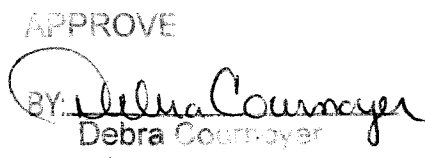 APPROVE
BY: Debra Cournoyer
Debra Cournoyer